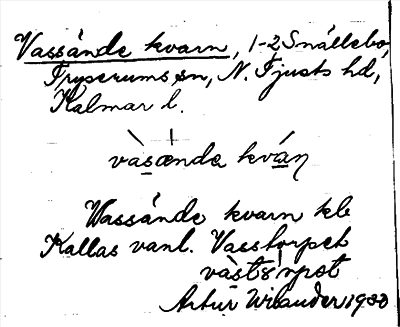 Vassände kvarn, 1-2 Snällebo,
Tryserums sn, N. Tjusts hd,
Kalmar l.
vàsœnde kván
Wassände kvarn kb
Kallas vanl. Vasstorpet
vàstårpet
Artur Wilander 1930